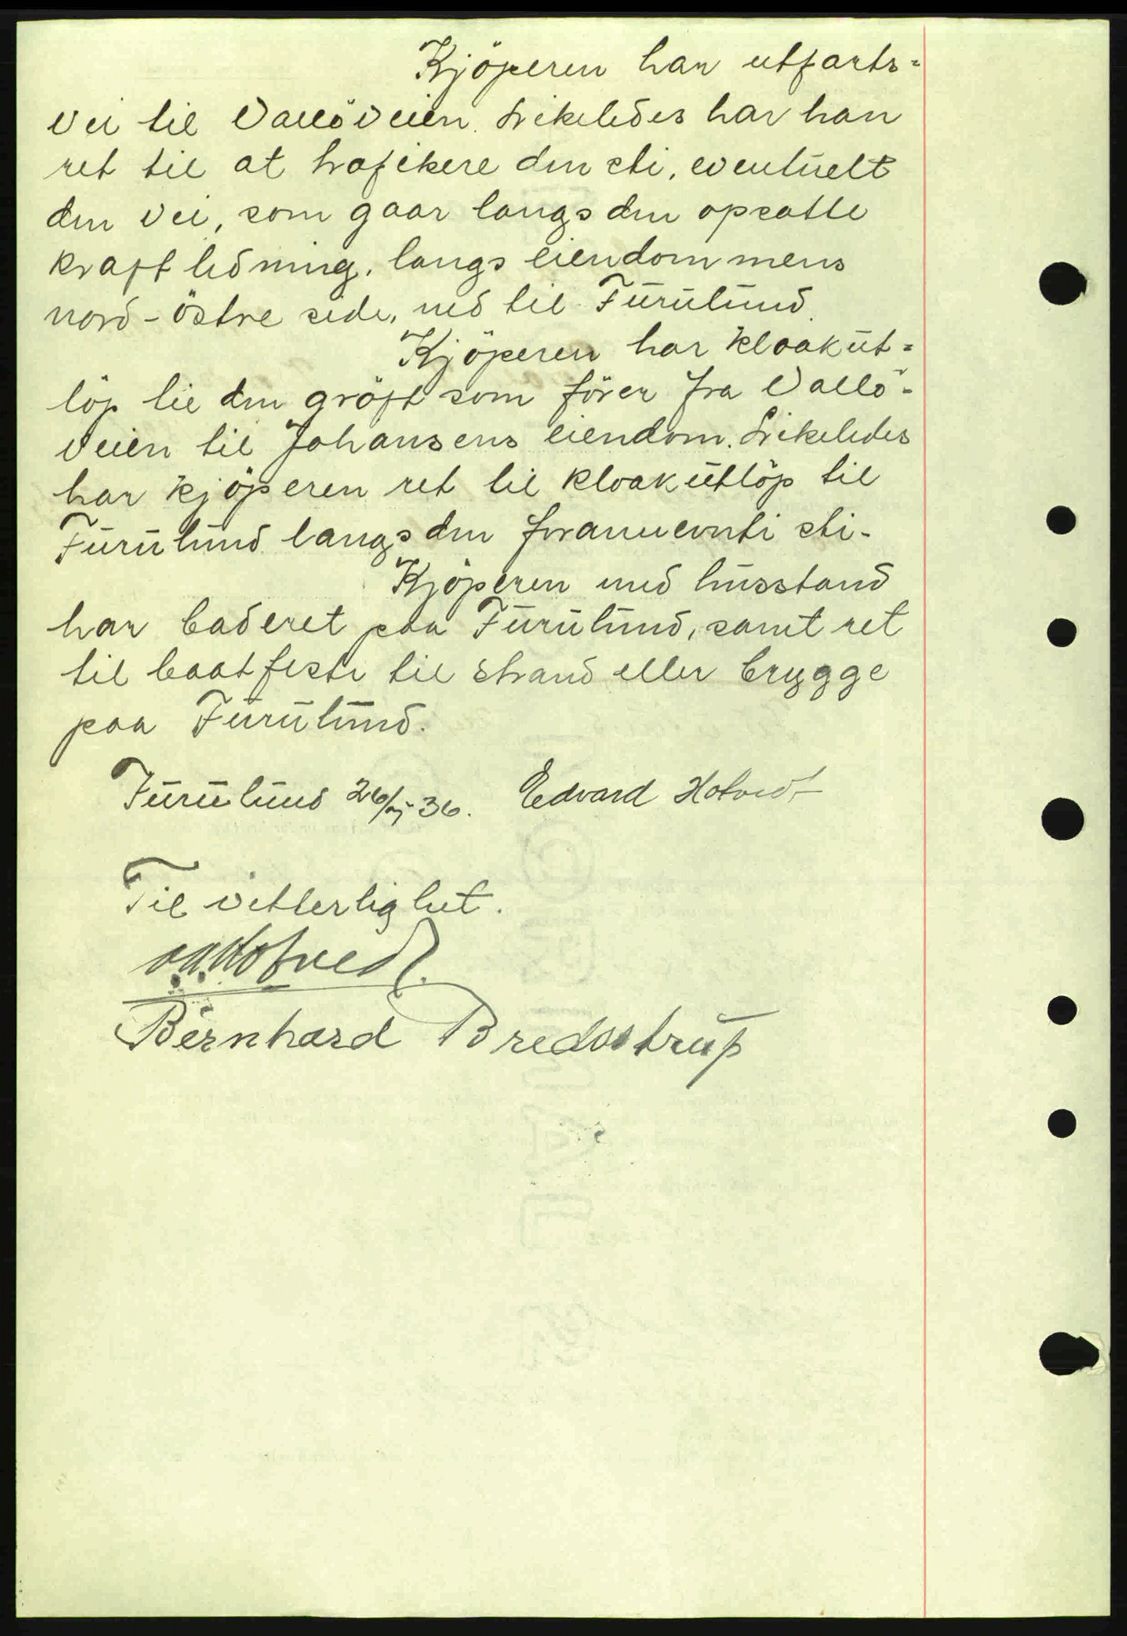 Kjöperen har utfarts=
vei til Vallöveien. Likeledes har han
ret til at trafikere den sti, eventuelt
den vei, som gaar langs den opsatte
kraftledning, langs eiendommens
nord-östre side, ned til Furulund.
Kjöperen har kloakut=
löp til den gröft som förer fra Vallö-
veien til Johansens eiendom. Likeledes
har kjöperen ret til kloakutlöp til
Furulund langs den forannevnte sti.
Kjöperen med husstand
har baderet paa Furulund, samt ret
til baatfeste til strand eller brygge
paa Furulund.
Furulund 26/ - 36. Edvard Hotvedt
Til vitterlighet.
Hotvedt.
Bernhard Bredsstrup